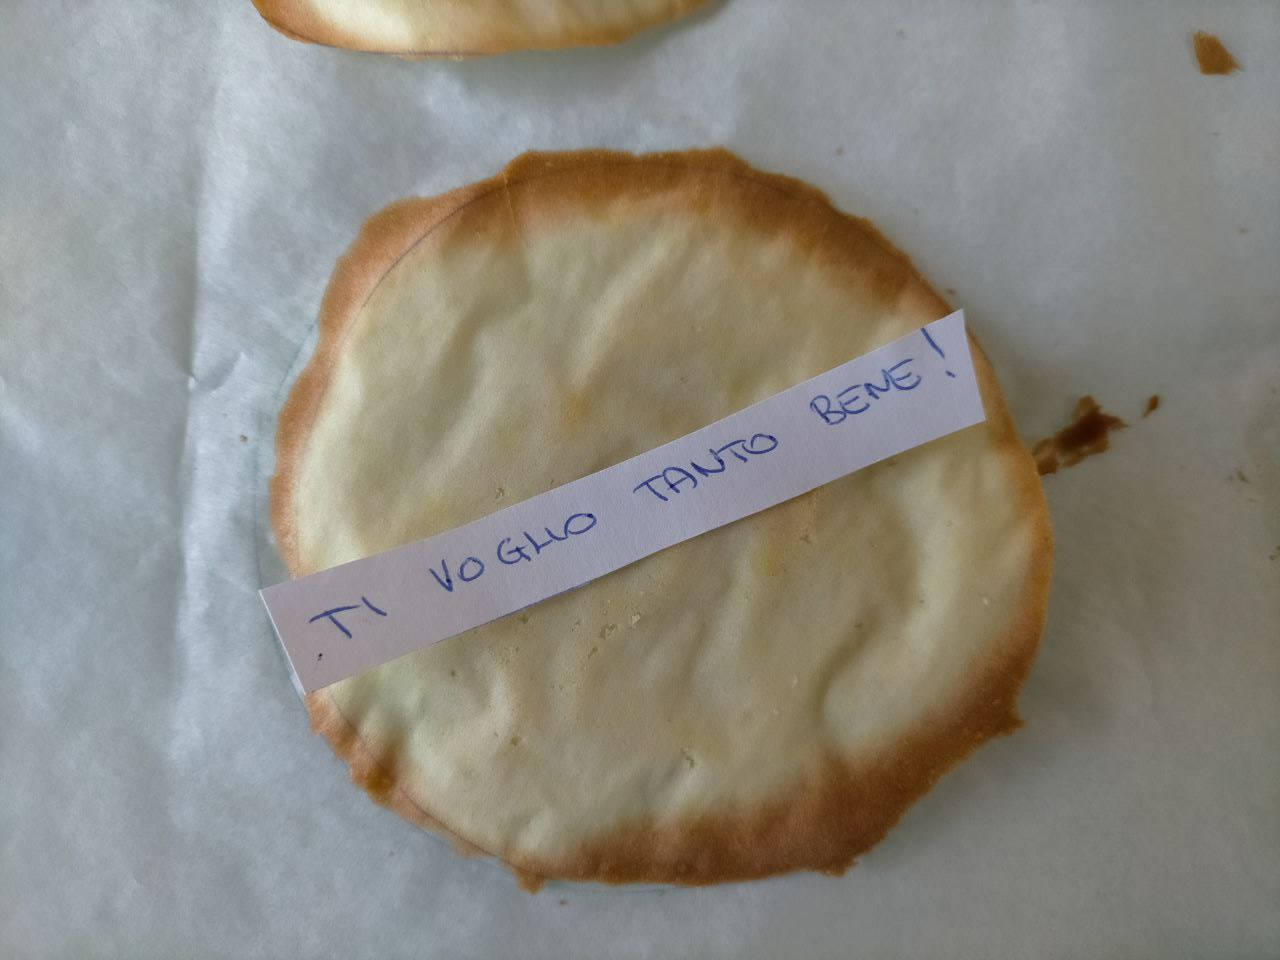 TI VOGLIO TANTO BENE!